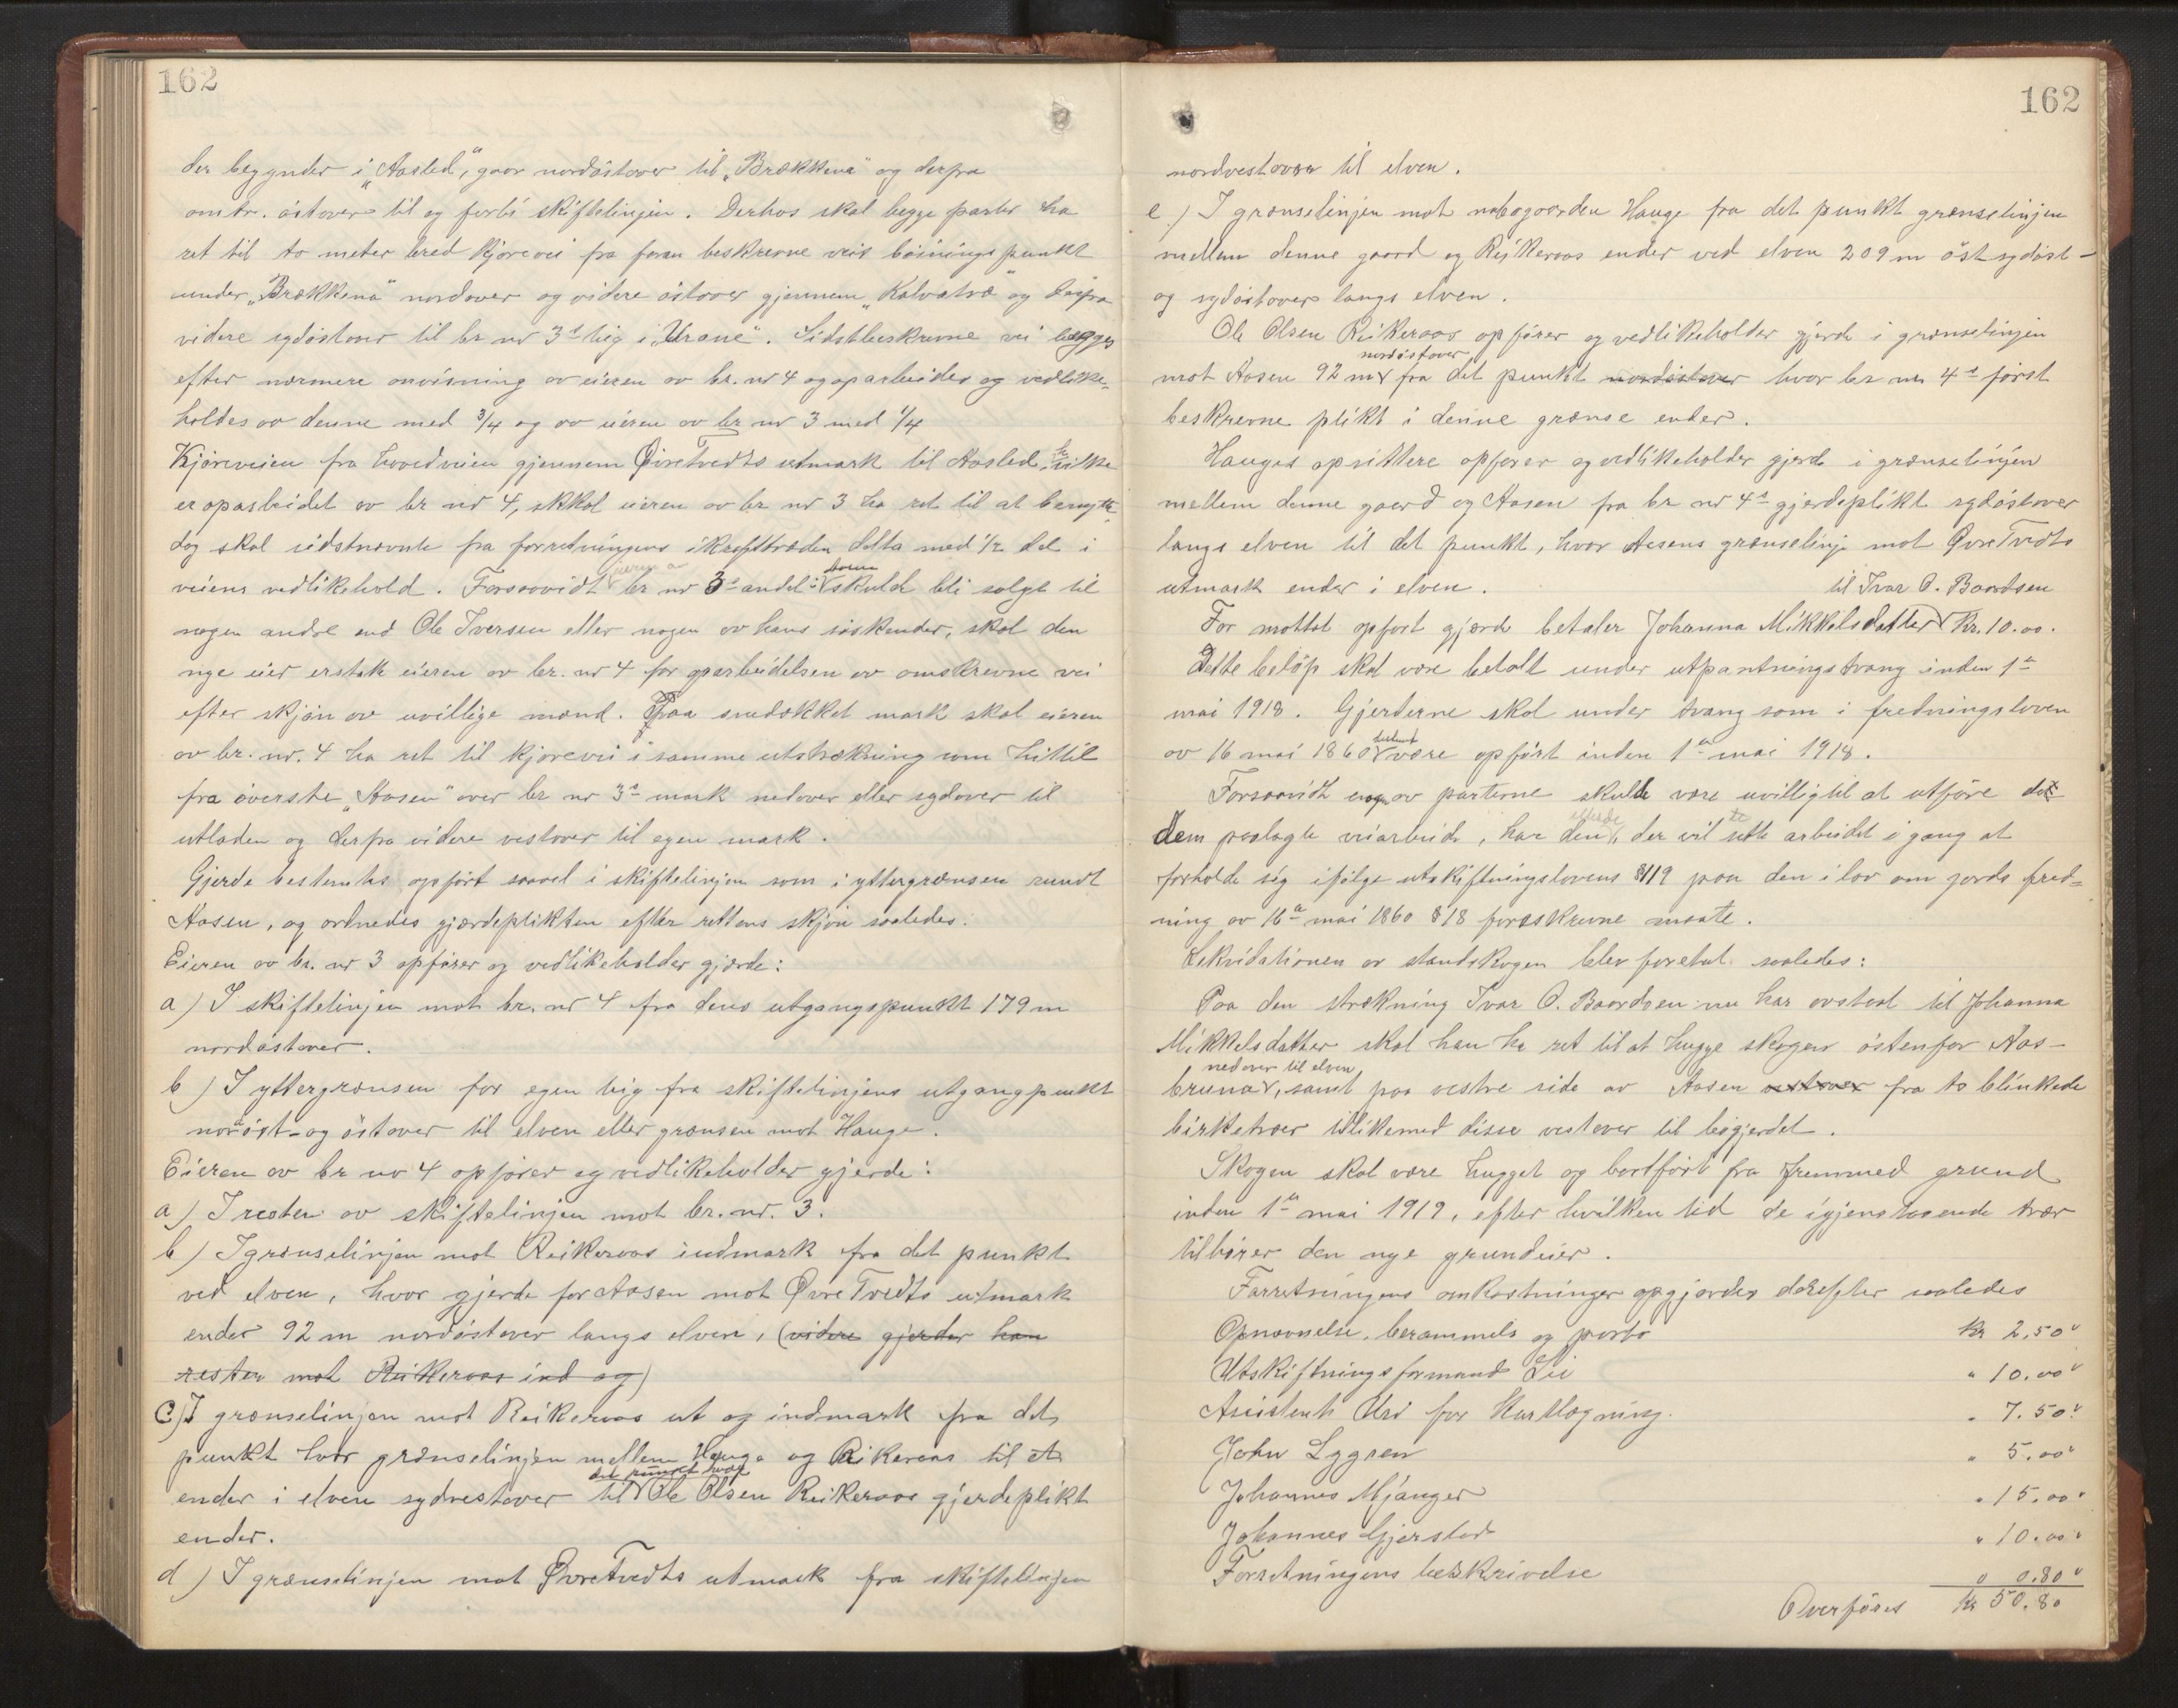 162
der begynder i „Aasled", gaar nordöstover til „Brækkena" og derfra
omtr. östover til og forbi skiftelinjen. Derhos skal begge parter ha
ret til to meter bred kjörevei fra foran beskrevne veis böinings punkt
under „Brækkena" nordover og videre östover gjennem „Kalvatræ" og derfra
videre sydöstover til br nr 3s teig i „Urane". Sidstbeskrevne vei lægges
efter nærmere anvisning av eieren av br. nr 4 og oparbeides og vedlike-
holdes av denne med 3/4 og av eieren av br nr 3 med 1/4
Kjöreveien fra hovedveien gjennem Øvre Tvedts utmark til Aasled, hvilke
er oparbeidet av br nr 4, skal eieren av br nr 3 ha ret til at benytte,
dog skal sidstnævnte fra forretningens ikrafttræden delta med 1/2 del i
veiens vedlikehold. Forsaavidt eieren av br nr 3s andel i Aasen skulde bli solgt til
nogen anden end Ole Iversen eller nogen av hans söskender, skal den
nye eier erstatte eieren av br. nr 4 for oparbeidelsen av omskrevne vei
efter skjön av uvillige mænd. Paa snedækket mark skal eieren
av br. nr. 4 ha ret til kjörevei i samme utstrækning som hittil
fra överste „Aasen" over br nr 3s mark nedover eller sydover til
utladen og derfra videre vestover til egen mark.
Gjerde bestemtes opfört saavel i skiftelinjen som i yttergrænsen rundt
Aasen, og ordnedes gjærdeplikten efter rettens skjön saaledes:
Eieren av br. nr 3 opförer og vedlikeholder gjærde:
a) I skiftelinjen mot br. nr 4 fra dens utgangspunkt 179 m
nordöstover.
b) I yttergrænsen for egen teig fra skiftelinjens utgangpunkt
nordöst- og östover til elven eller grænsen mot Hauge.
Eieren av br nr 4 opförer og vedlikeholder gjerde:
a) I resten av skiftelinjen mot br. nr. 3.
b) I grænselinjen mot Reikeraas indmark fra det punkt
ved elven, hvor gjerde for Aasen mot Øvre Tvedts utmark
ender 92 m nordöstover langs elven, (videre gjerder han
resten mot Reikeraas ind og)
C) I grænselinjen mot Reikeraas ut og indmark fra det
punkt hvor grænselinjen mellem Hauge og Reikeraas til et
ender i elven sydvestover til det punkt hvor Ole Olsen Reikeraas gjerdeplikt
ender.
d) I grænselinjen mot Øvre Tvedts utmark fra skiftelinjen
162
nordvestover til elven.
e) I grænselinjen mot nabogaarden Hauge fra det punkt grænselinjen
mellem denne gaard og Reikeraas ender ved elven 209 m öst sydöst-
og sydöstover langs elven.
Ole Olsen Reikeraas opförer og vedlikeholder gjerde i grænselinjen
mot Aasen 92 m nordöstover fra det punkt nordöstover hvor br nr 4s först
beskrevne plikt i denne grænse ender.
Hauges opsittere opförer og vedlikeholder gjerde i grænselinjen
mellem denne gaard og Aasen fra br nr 4s gjerdeplikt sydöstover
langs elven til det punkt, hvor Aasens grænselinje mot Øvre Tvedts
utmark ender i elven.
For mottat opfört gjærde betaler Johanna Mikkelsdatter til Ivar O. Baardsen Kr. 10.00.
Dette belöp skal være betalt under utpantningstvang inden 1te
mai 1918. Gjerderne skal under tvang som i fredningsloven
av 16 mai 1860 bestemt være opfört inden 1te mai 1918.
Forsaavidt nogen av parterne skulde være uvillig til at utföre det
dem paalagte veiarbeide, har den, der vil sætte arbeidet i gang at
forholde sig ifölge utskiftningslovens § 119 paa den i lov om jords fred-
ning av 16de mai 1860 § 18 foreskrevne maate.
Likvidationen av standskogen blev foretat saaledes:
Paa den strækning Ivar O. Baardsen nu har avstaat til Johanna
Mikkelsdatter skal han ha ret til at hugge skogen östenfor Aas-
bruna nedover til elven, samt paa vestre side av Aasen vestover fra to blinkede
birketrær tillikemed disse vestover til bögjerdet.
Skogen skal være hugget og bortfört fra fremmed grund
inden 1te mai 1919, efter hvilken tid de igjenstaaende trær
tilhörer den nye grundeier.
Forretningens omkostninger opgjordes derefter saaledes
Opnævnelse, berammels og porto kr 2.50
Utskiftningsformand Lii " 10.00
Assistent Uri for kartlægning. " 7.50
John Lygren " 5.00
Johannes Mjanger " 15.00
Johannes Gjerstad " 10.00
Forretningens beskrivelse " 0.80
Overföres Kr 50.80